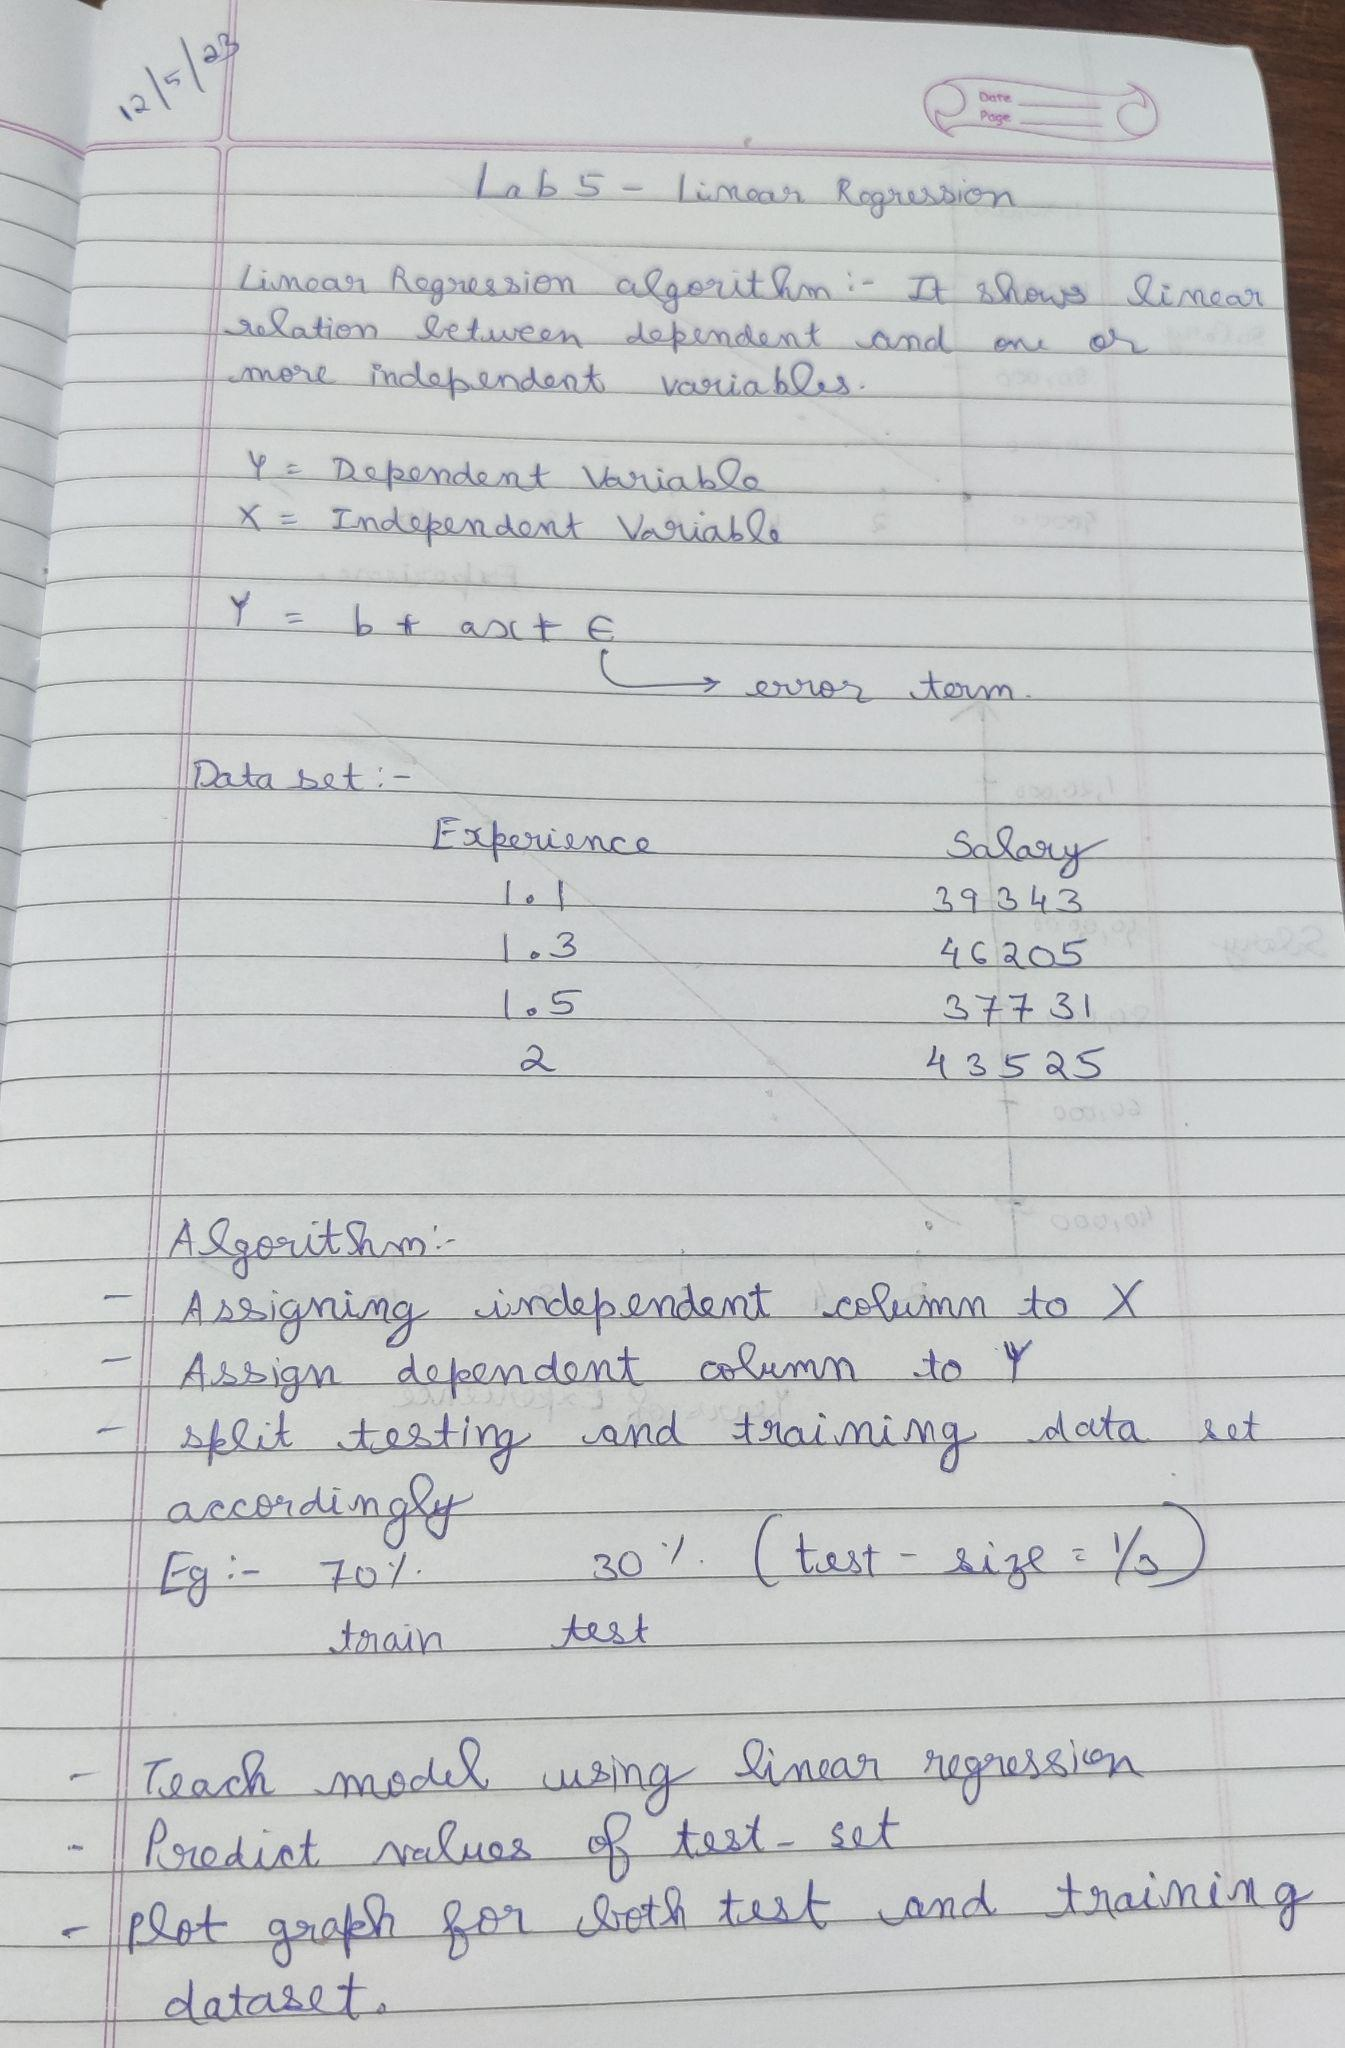 12/5/23
Date
Page
Lab 5 - Linear Regression
Linear Regression algorithm :- It shows linear
relation between dependent and one or
more independent variables.
Y = Dependent Variable
X = Independent Variable
Y = b + ax + ∈
→ error term.
Data set :-
Experience Salary
1.1 39343
1.3 46205
1.5 37731
2 43525
Algorithm :-
- Assigning independent column to X
- Assign dependent column to Y
- split testing and training data set
accordingly
Eg :- 70% 30% (test - size = 1/3)
train test
- Teach model using linear regression
- Predict values of test - set
- plot graph for both test and training
dataset.